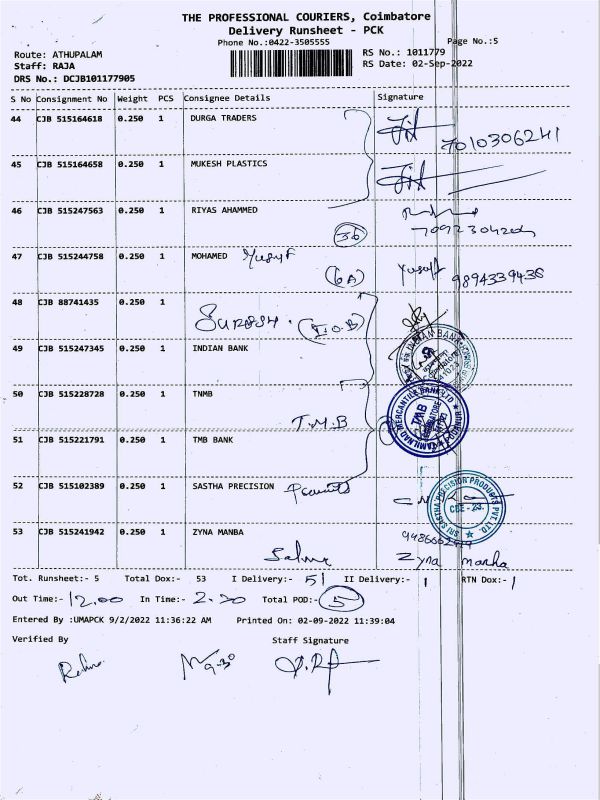 THE PROFESSIONAL COURIERS, Coimbatore
Delivery Runsheet - PCK
Phone No.:0422-3505555
Page No.:5
Route: ATHUPALAM
RS No.: 1011779
Staff: RAJA
RS Date: 02-Sep-2022
DRS No.: DCJB101177905
S No Consignment No Weight PCS Consignee Details Signature
44 CJB 515164618 0.250 1 DURGA TRADERS
7010306241
45 CJB 515164658 0.250 1 MUKESH PLASTICS
46 CJB 515247563 0.250 1 RIYAS AHAMMED
47 CJB 515244758 0.250 1 MOHAMED Yusuf
(6A) Yusuff 9894339436
48 CJB 88741435 0.250 1
SURESH . (I.O.B)
49 CJB 515247345 0.250 1 INDIAN BANK
50 CJB 515228728 0.250 1 TNMB
TAMILNAD MERCANTILE BANK LTD
TMB
T.M.B
51 CJB 515221791 0.250 1 TMB BANK
52 CJB 515102389 0.250 1 SASTHA PRECISION
SRI SASTHA PRECISION PRODUCTS PVT. LTD.
CBE - 23.
53 CJB 515241942 0.250 1 ZYNA MANBA
Zyna
Tot. Runsheet:- 5 Total Dox:- 53 I Delivery:- 51 II Delivery:- 1 RTN Dox:- 1
Out Time:- 12.00 In Time:- 2.30 Total POD:- 5
Entered By :UMAPCK 9/2/2022 11:36:22 AM Printed On: 02-09-2022 11:39:04
Verified By Staff Signature